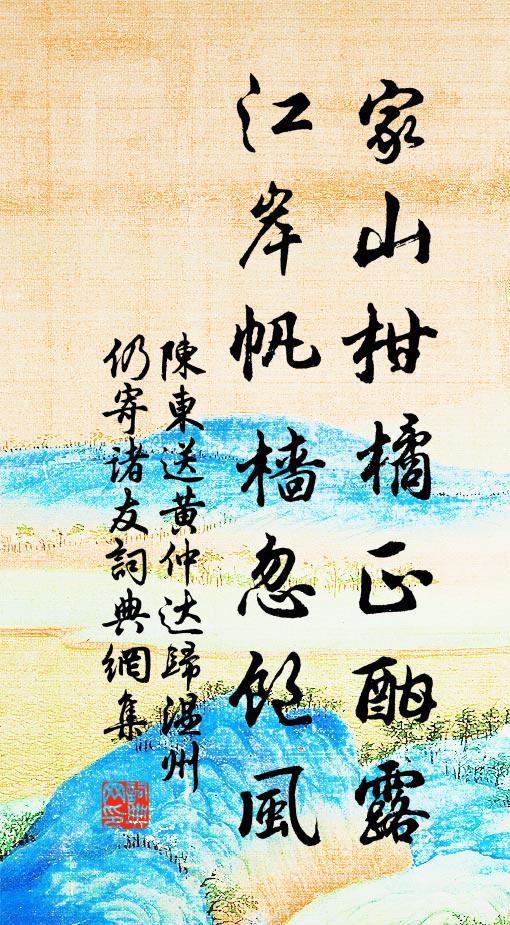 家山柑橘正酣露
江岸帆檣忽飽風
陳東送黄仲达歸温州
仍寄諸友詞典網集